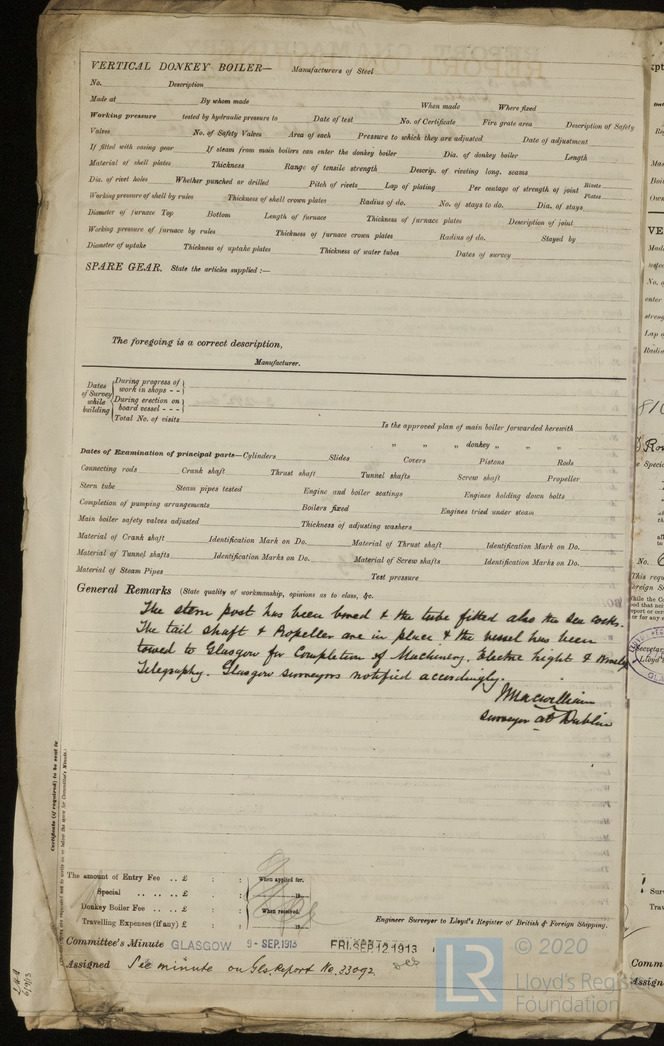 VERTICAL DONKEY BOILER— Manufacturers of Steel
No. Description
Made at By whom made When made Where fixed
Working pressure tested by hydraulic pressure to Date of test No. of Certificate Fire grate area Description of Safety
Valves No. of Safety Valves Area of each Pressure to which they are adjusted Date of adjustment
If fitted with easing gear If steam from main boilers can enter the donkey boiler Dia. of donkey boiler Length
Material of shell plates Thickness Range of tensile strength Descrip. of riveting long. seams
Dia. of rivet holes Whether punched or drilled Pitch of rivets Lap of plating Per centage of strength of joint Rivets Plates
Working pressure of shell by rules Thickness of shell crown plates Radius of do. No. of stays to do. Dia. of stays
Diameter of furnace Top Bottom Length of furnace Thickness of furnace plates Description of joint
Working pressure of furnace by rules Thickness of furnace crown plates Radius of do. Stayed by
Diameter of uptake Thickness of uptake plates Thickness of water tubes Dates of survey
SPARE GEAR. State the articles supplied :—
The foregoing is a correct description,
Manufacturer.
Dates of Survey while building
During progress of work in shops - -
During erection on board vessel - - -
Total No. of visits
Is the approved plan of main boiler forwarded herewith
" " " donkey " " "
Dates of Examination of principal parts—Cylinders Slides Covers Pistons Rods
Connecting rods Crank shaft Thrust shaft Tunnel shafts Screw shaft Propeller
Stern tube Steam pipes tested Engine and boiler seatings Engines holding down bolts
Completion of pumping arrangements Boilers fixed Engines tried under steam
Main boiler safety valves adjusted Thickness of adjusting washers
Material of Crank shaft Identification Mark on Do. Material of Thrust shaft Identification Mark on Do.
Material of Tunnel shafts Identification Marks on Do. Material of Screw shafts Identification Marks on Do.
Material of Steam Pipes Test pressure
General Remarks (State quality of workmanship, opinions as to class, &c.
The stern post has been bored & the tube fitted also the sea cocks.
The tail shaft & Propeller are in place & the vessel has been
towed to Glasgow for Completion of Machinery. Electric Light &
Telegraphy. Glasgow surveyors notified accordingly.
JMacwilliam
Surveyor at Dublin
Certificate (if required) to be sent to
The amount of Entry Fee .. £ : : When applied for.
Special .. .. .. £ : : 19
Donkey Boiler Fee .. .. £ : : When received.
Travelling Expenses (if any) £ : : 19
Engineer Surveyor to Lloyd's Register of British & Foreign Shipping.
Committee's Minute GLASGOW 9 - SEP. 1913 FRI. SEP. 12. 1913
Assigned See minute on Gls. Report No. 33092
© 2020
LR
Lloyd's Register
Foundation